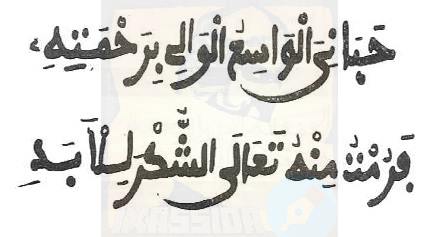 حَبَانِيَ الْوَاسِعُ الْوَالِي بِرَحْمَتِهِ،
فَرُمْتُ مِنْهُ تَعَالَى الشُّكْرَ لِلْأَبَدِ